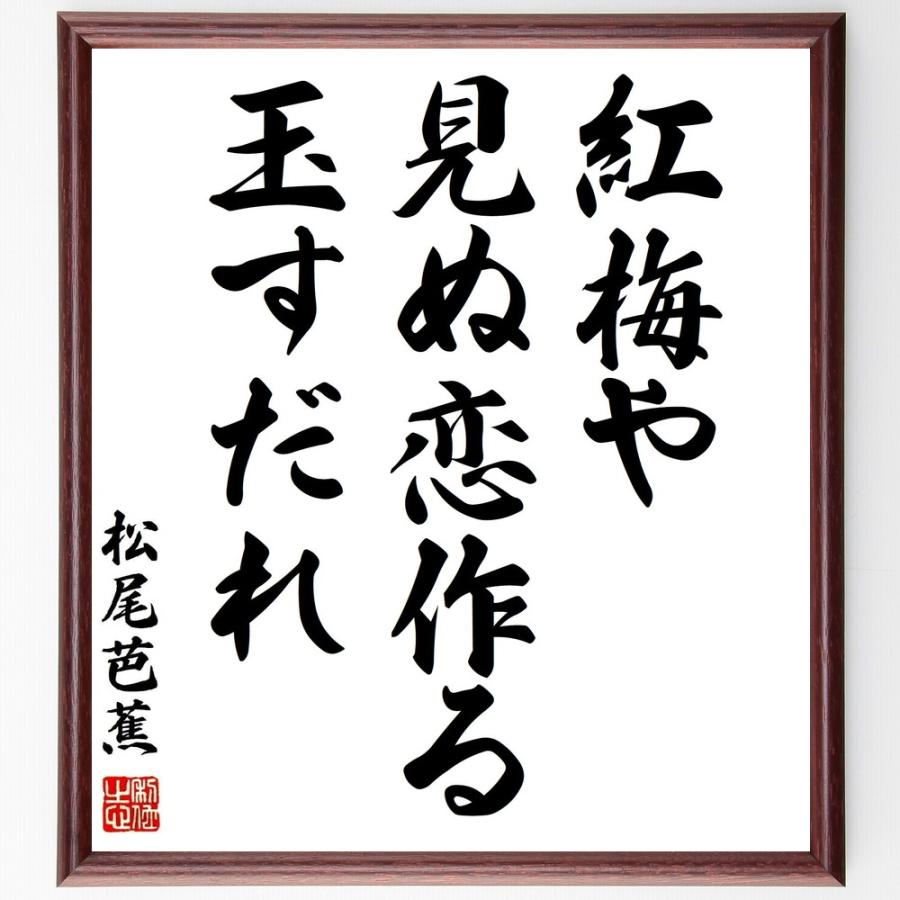 紅梅や
見ぬ恋作る
玉すだれ
松尾芭蕉